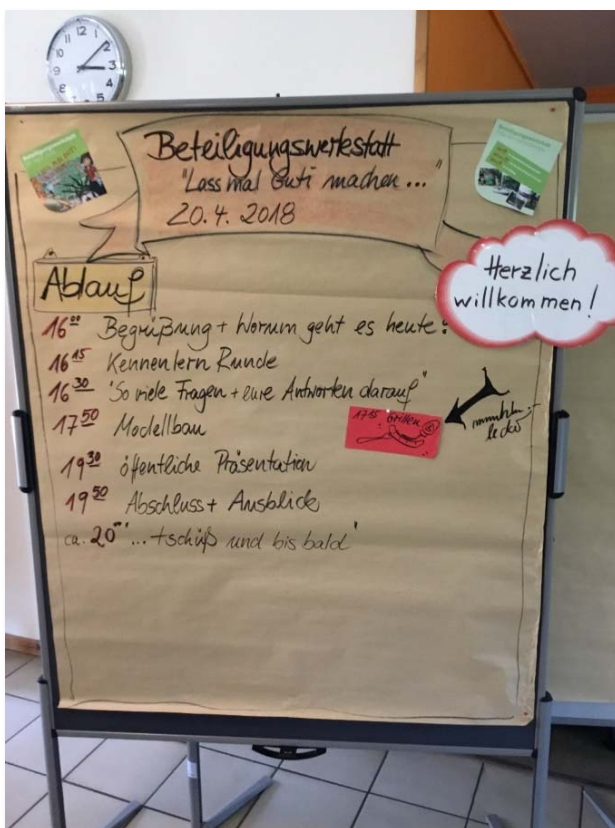 12
11
1
10
2
9
3
8
4
7
5
Beteiligungswerkstatt
"Lass mal Guti machen..."
20.4.2018
Herzlich
willkommen!
Ablauf
16⁰⁰ Begrüßung + Worum geht es heute?
16¹⁵ Kennenlern Runde
16³⁰ "So viele Fragen + eure Antworten darauf"
17⁵⁰ Modellbau
Grillen
19³⁰ öffentliche Präsentation
19⁵⁰ Abschluss + Ausblick
ca. 20⁰⁰ "...tschüß und bis bald"